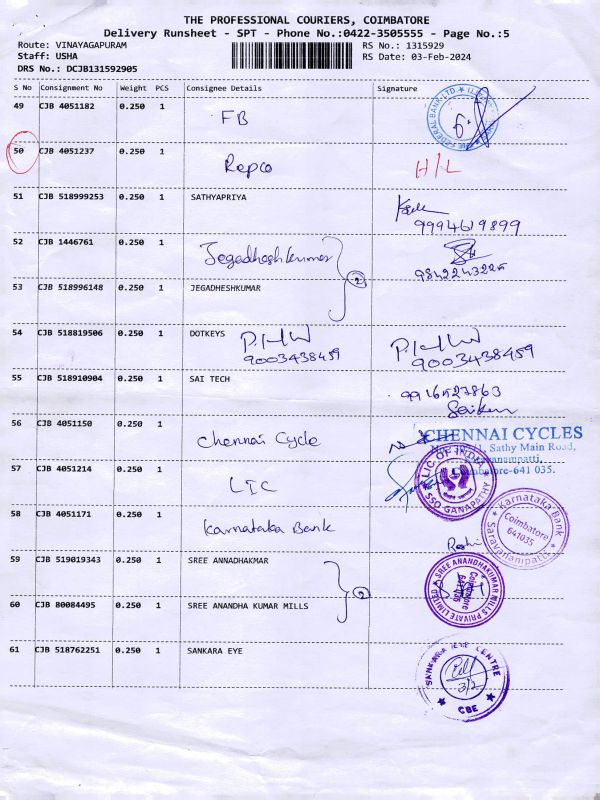 THE PROFESSIONAL COURIERS, COIMBATORE
Delivery Runsheet - SPT - Phone No.:0422-3505555 - Page No.:5
Route: VINAYAGAPURAM RS No.: 1315929
Staff: USHA RS Date: 03-Feb-2024
DRS No.: DCJB131592905
S No Consignment No Weight PCS Consignee Details Signature
49 CJB 4051182 0.250 1 FB
FEDERAL BANK LTD
50 CJB 4051237 0.250 1 Repco H/L
51 CJB 518999253 0.250 1 SATHYAPRIYA
9994619899
52 CJB 1446761 0.250 1 Jegadheshkumar
2
53 CJB 518996148 0.250 1 JEGADHESHKUMAR
54 CJB 518819506 0.250 1 DOTKEYS
9003438459 9003438459
55 CJB 518910904 0.250 1 SAI TECH 9916527863
56 CJB 4051150 0.250 1 Chennai Cycle
CHENNAI CYCLES
Sathy Main Road,
641 035.
57 CJB 4051214 0.250 1 LIC
LIC OF INDIA
SSO GANAPATHY
58 CJB 4051171 0.250 1 Karnataka Bank
Karnataka Bank
Coimbatore
641035
Saravanampatti
59 CJB 519019343 0.250 1 SREE ANNADHAKMAR
2
SREE ANANDHAKUMAR MILLS PRIVATE LIMITED
Coimbatore
60 CJB 80084495 0.250 1 SREE ANANDHA KUMAR MILLS
61 CJB 518762251 0.250 1 SANKARA EYE
SANKARA EYE CENTRE
3/2
CBE